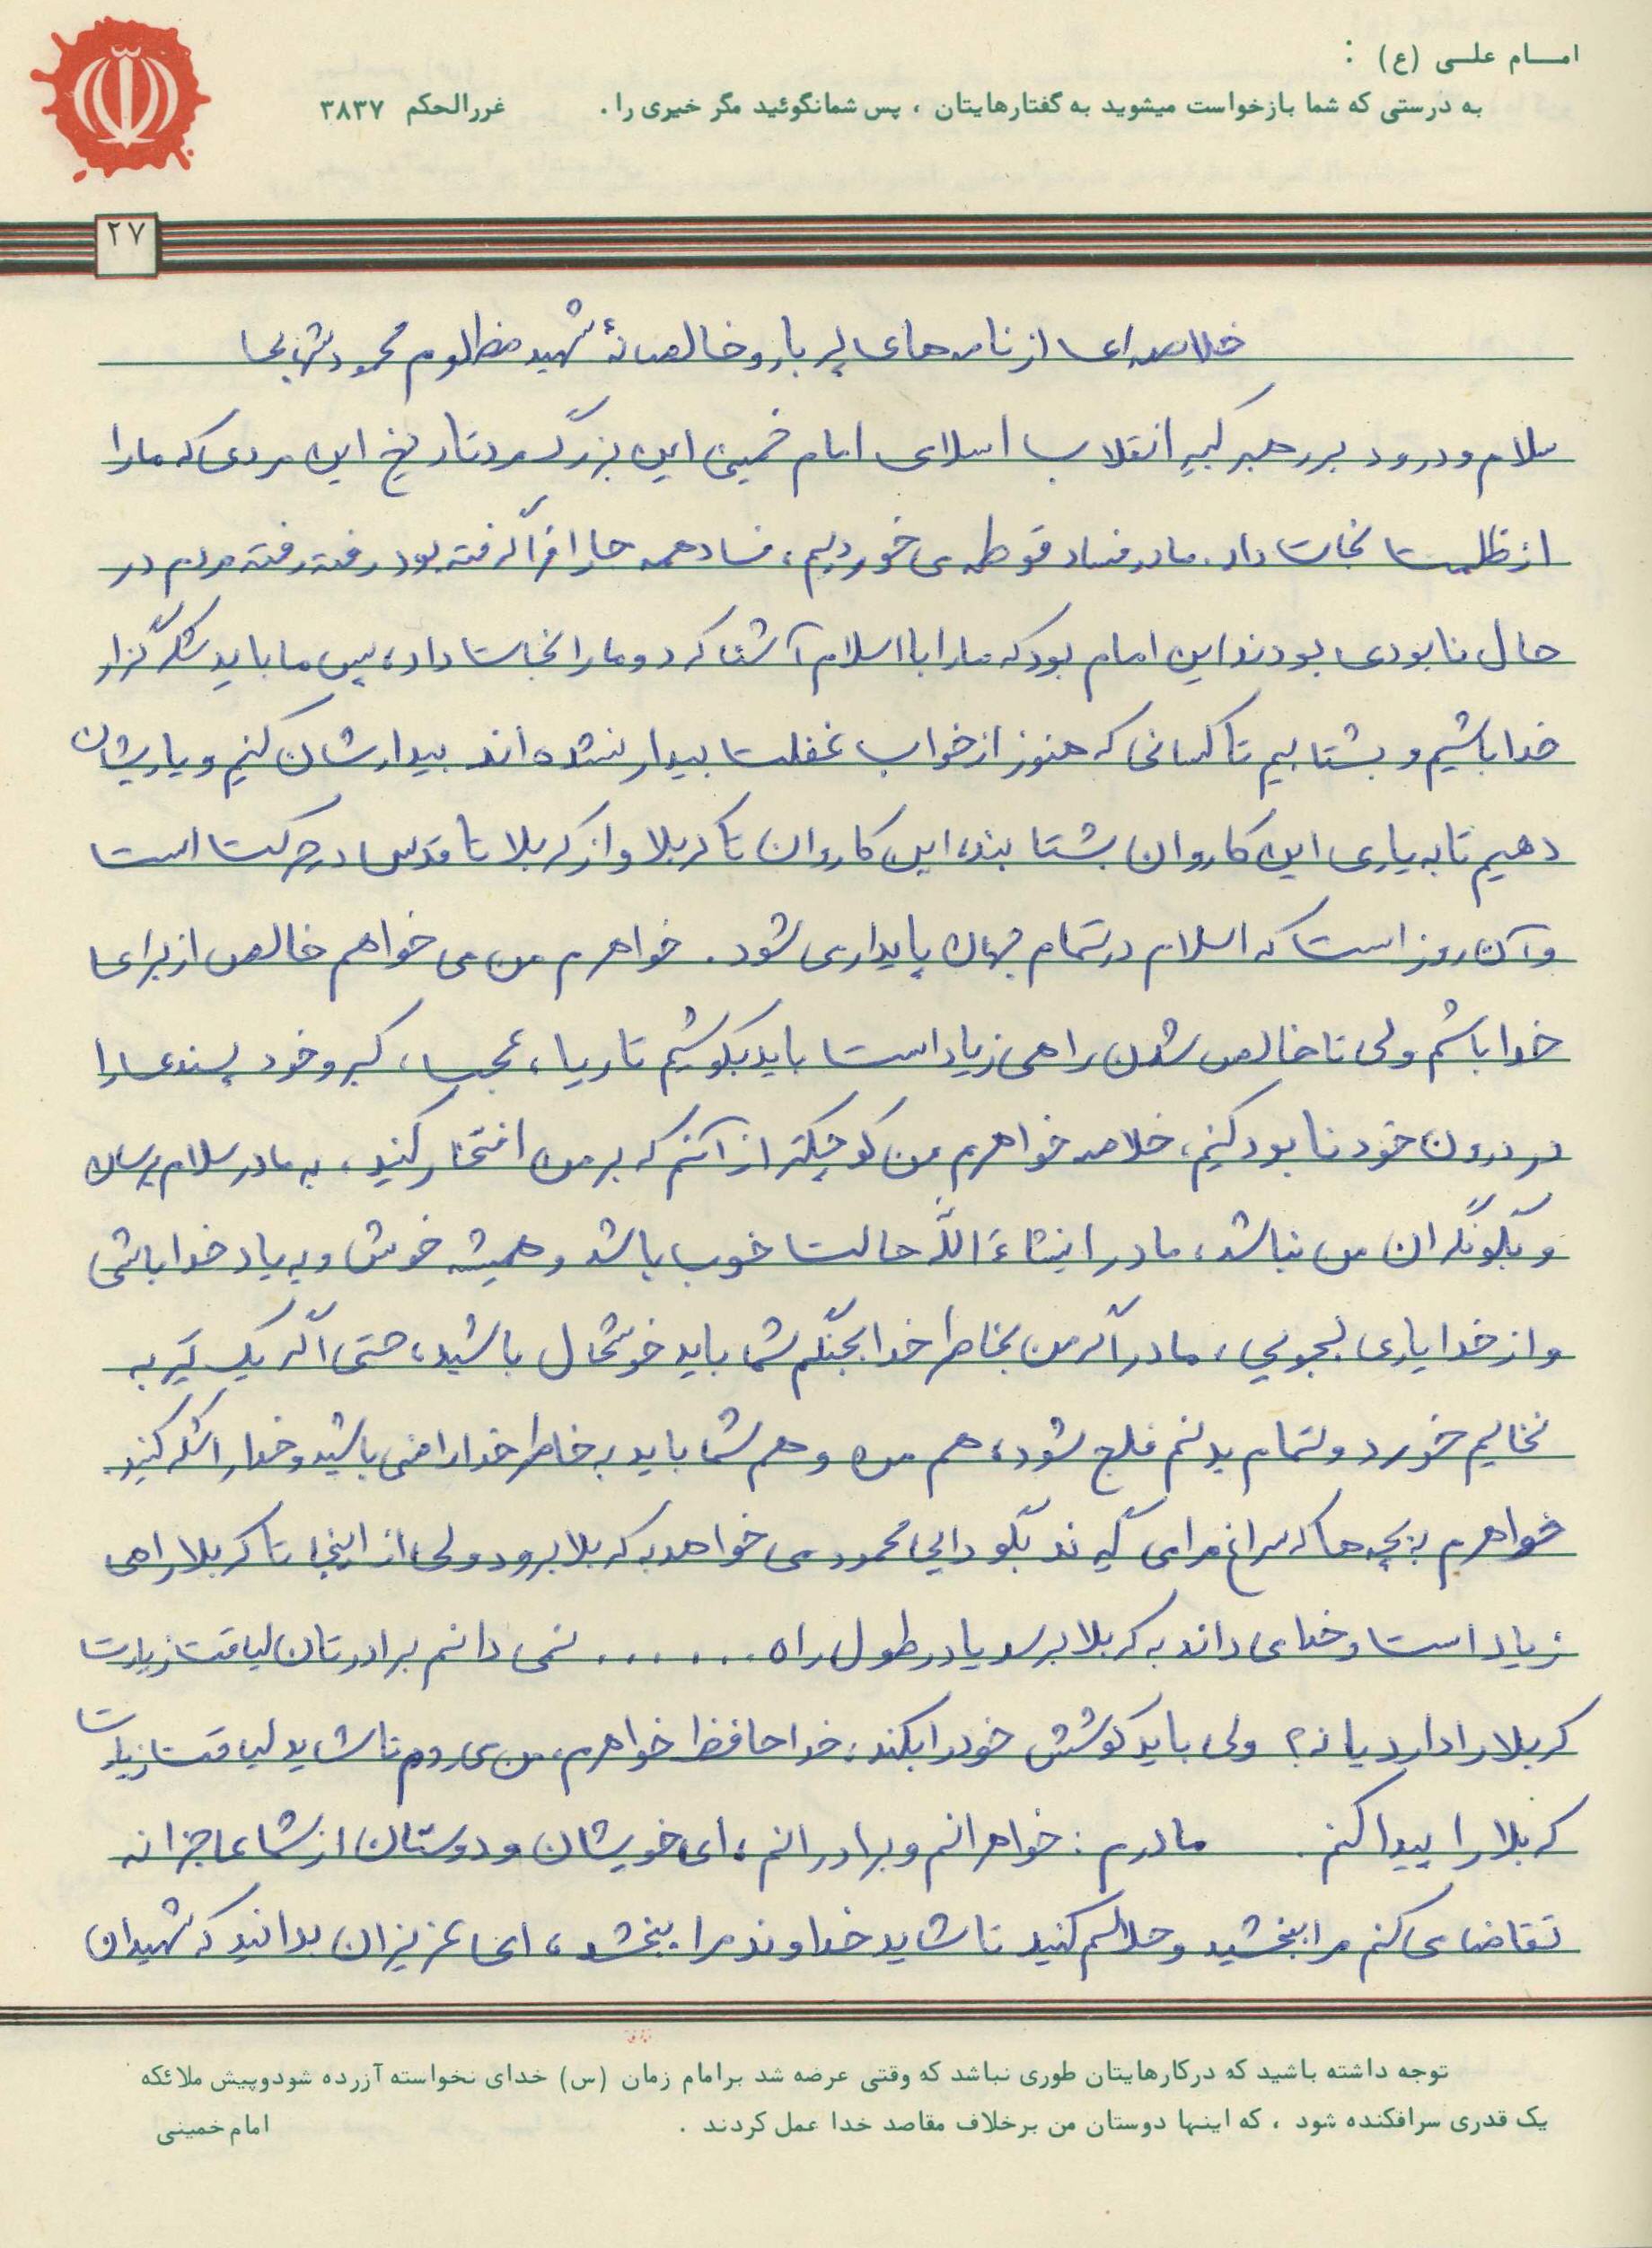 امــام علــی (ع) :
به درستی که شما بازخواست میشوید به گفتارهایتان ، پس شمانگوئید مگر خیری را . غررالحکم ۳۸۳۷
۲۷
خلاصه‌ای از نامه‌های پر بار و خالصانهٔ شهید مظلوم محمود
سلام و درود بر رهبر کبیر انقلاب اسلامی امام خمینی این بزرگ مرد تاریخ این مردی که ما را
از ظلمت نجات داد. ما در فساد غوطه می خوردیم، فساد همه جا را فرا گرفته بود رفته رفته مردم در
حال نابودی بودند این امام بود که ما را با اسلام آشنا کرد و ما را نجات داد، پس ما باید شکرگزار
خدا باشیم و بشتابیم تا کسانی که هنوز از خواب غفلت بیدار نشده اند بیدارشان کنیم و یاریشان
دهیم تا به یاری این کاروان بشتابند، این کاروان تا کربلا و از کربلا تا قدس در حرکت است
و آن روز است که اسلام در تمام جهان پایدار می شود. خواهرم من می خواهم خالص از برای
خدا باشم ولی تا خالص شدن راهی زیاد است باید بکوشیم تا ریا، عجب، کبر و خود پسندی را
در درون خود نابود کنیم، خلاصه خواهرم من کوچکتر از آنم که بر من افتخار کنید، به مادر سلام برسان
و بگو نگران من نباشد، مادر انشاءَ اللّه حالت خوب باشد و همیشه خوش و به یاد خدا باشی
و از خدا یاری بجویی، مادر اگر من بخاطر خدا بجنگم شما باید خوشحال باشید، حتی اگر یک تیر به
نخاعم خورد و تمام بدنم فلج شود، هم من و هم شما باید به خاطر خدا راضی باشید و خدا را شکر کنید.
خواهرم به بچه ها که سراغ مرا می گیرند بگو دایی محمود می خواهد به کربلا برود ولی از اینجا تا کربلا راهی
زیاد است و خدا می داند به کربلا برسد یا در طول راه ....... نمی دانم برادرتان لیاقت زیارت
کربلا را دارد یا نه؟ ولی باید کوشش خود را بکند، خدا حافظ خواهرم، من می روم تا شاید لیاقت زیارت
کربلا را پیدا کنم. مادرم : خواهرانم و برادرانم، ای خویشان و دوستان از شما عاجزانه
تقاضا می کنم مرا ببخشید و حلالم کنید تا شاید خداوند مرا ببخشد، ای عزیزان بدانید که شهیدان
توجه داشته باشید که درکارهایتان طوری نباشد که وقتی عرضه شد برامام زمان (س) خدای نخواسته آزرده شودوپیش ملائکه
یک قدری سرافکنده شود ، که اینها دوستان من برخلاف مقاصد خدا عمل کردند . امام خمینی